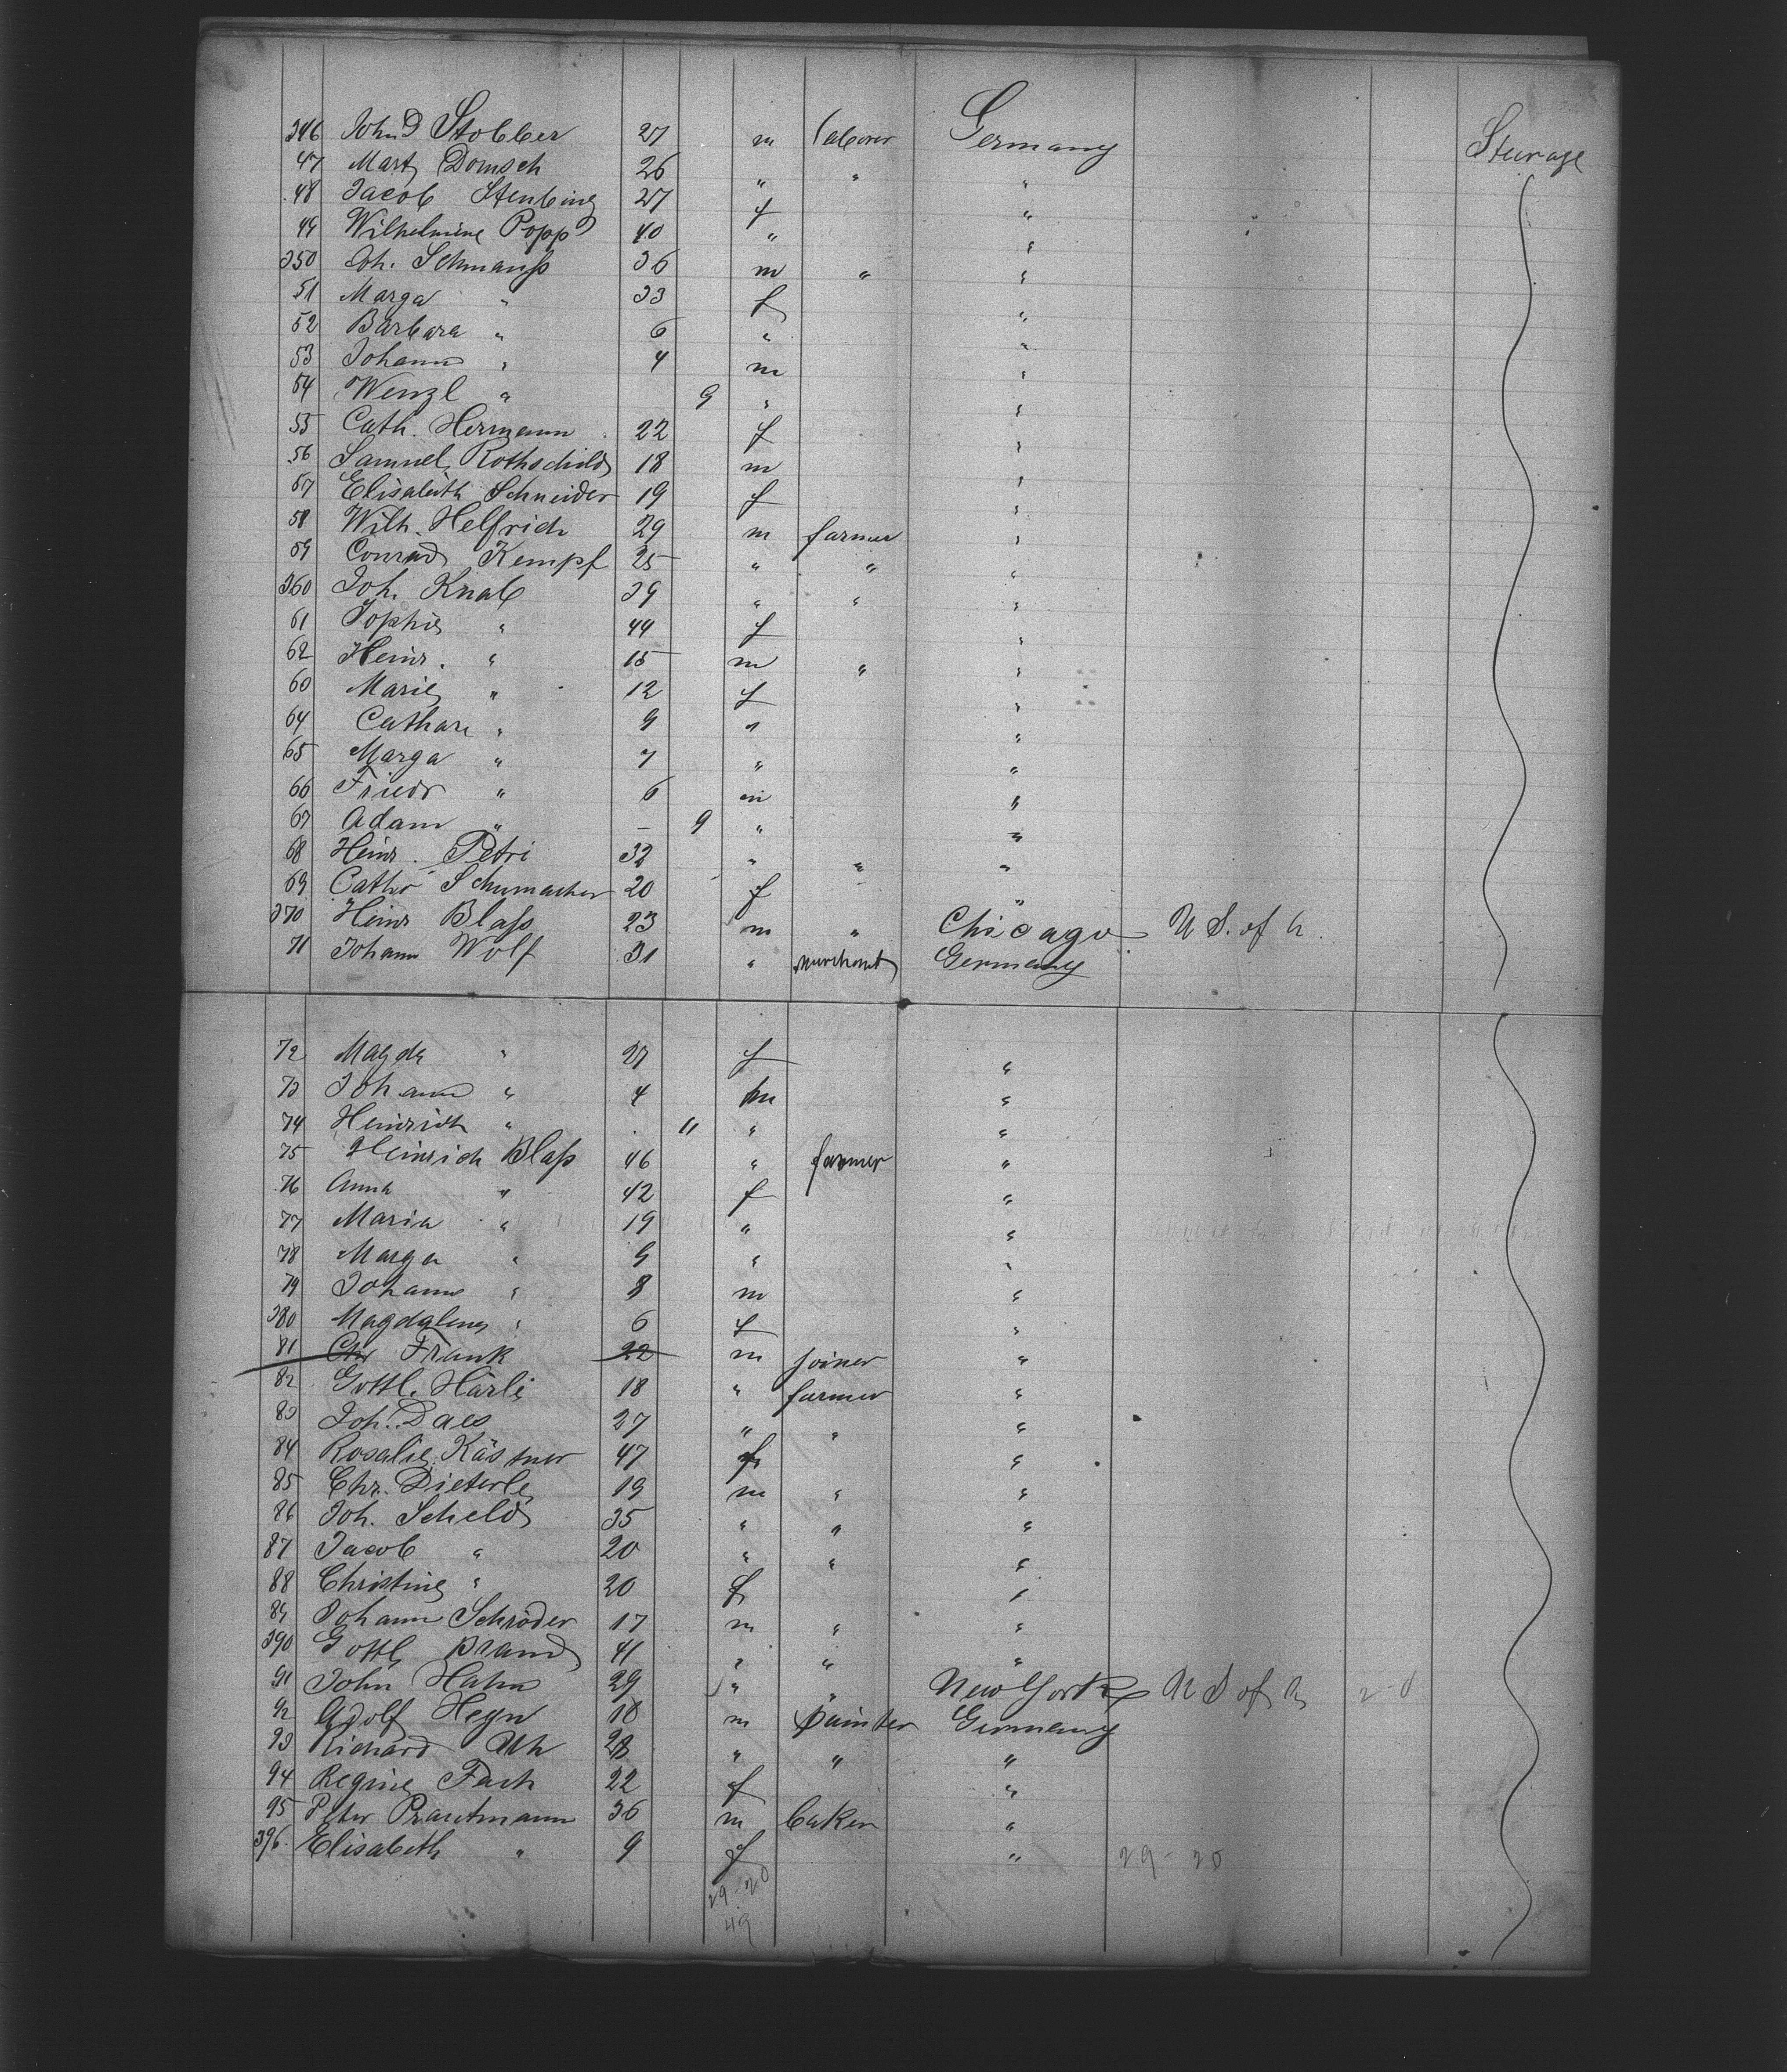 346 John Stobber 27 m laborer Germany Steerage
47 Mart Domsch 26 " " "
48 Jacob Stenbing 27 f "
49 Wilhelmine Popp 40 " "
350 Joh. Schmauß 36 m " "
51 Marga " 33 f "
52 Barbara " 6 " "
53 Johann " 4 m "
54 Wenzl " 9 " "
55 Cath. Hermann 22 f "
56 Samuel Rothschild 18 m "
57 Elisabeth Schneider 19 f "
58 Wilh. Helfrich 29 m farmer "
59 Conrad Kempf 25 " " "
360 Joh. Knab 39 " " "
61 Sophie " 44 f "
62 Heinr. " 15 m " "
60 Marie " 12 f "
64 Cathar " 9 " "
65 Marga " 7 " "
66 Friedr " 6 m "
67 Adam " – 9 " "
68 Heinr. Petri 32 " " "
69 Cathr Schumacher 20 f "
370 Heinr Blaß 23 m " Chicago U S. of A.
71 Johann Wolf 31 " merchant Germany
72 Magda " 27 f "
73 Johann " 4 m "
74 Heinrich " 11 " "
75 Heinrich Blaß 46 " farmer "
76 Anna " 42 f "
77 Maria " 19 " "
78 Marga " 9 " "
79 Johann " 8 m "
380 Magdalena " 6 f "
81 Chr Frank 22 m joiner "
82 Gottl. Härle 18 " farmer "
83 Joh. Daes 27 " " "
84 Rosalie Kästner 47 f "
85 Chr. Dieterle 19 m " "
86 Joh. Scheld 35 " " "
87 Jacob " 20 " " "
88 Christine " 20 f "
89 Johann Schröder 17 m " "
390 Gottl. Brand 41 " " "
91 John Hahn 29 " " New York U S of A 2-0
92 Adolf Heyn 18 m painter Germany
93 Richard Uh 28 " " "
94 Regine Fach 22 f "
95 Peter Prautmann 36 m baker "
396. Elisabeth " 9 f " 29-20
29-20
49